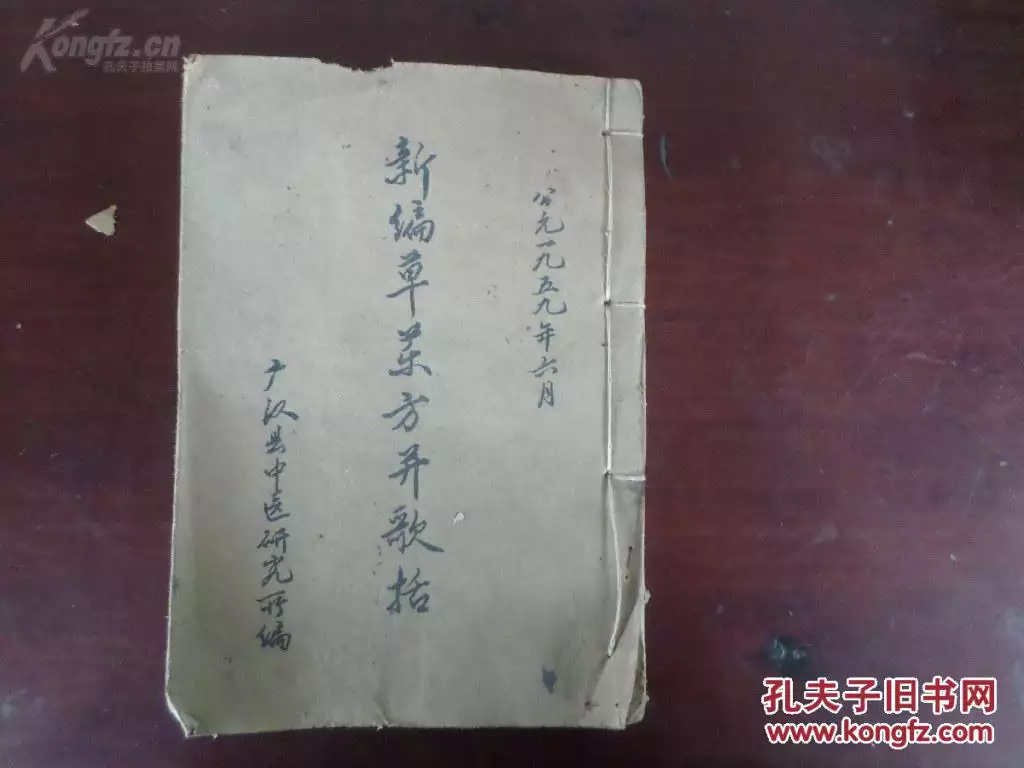 公元一九五九年六月
新编草药方并歌括
广汉县中医研究所编
Kongfz.cn
孔夫子旧书网
孔夫子旧书网
www.kongfz.com